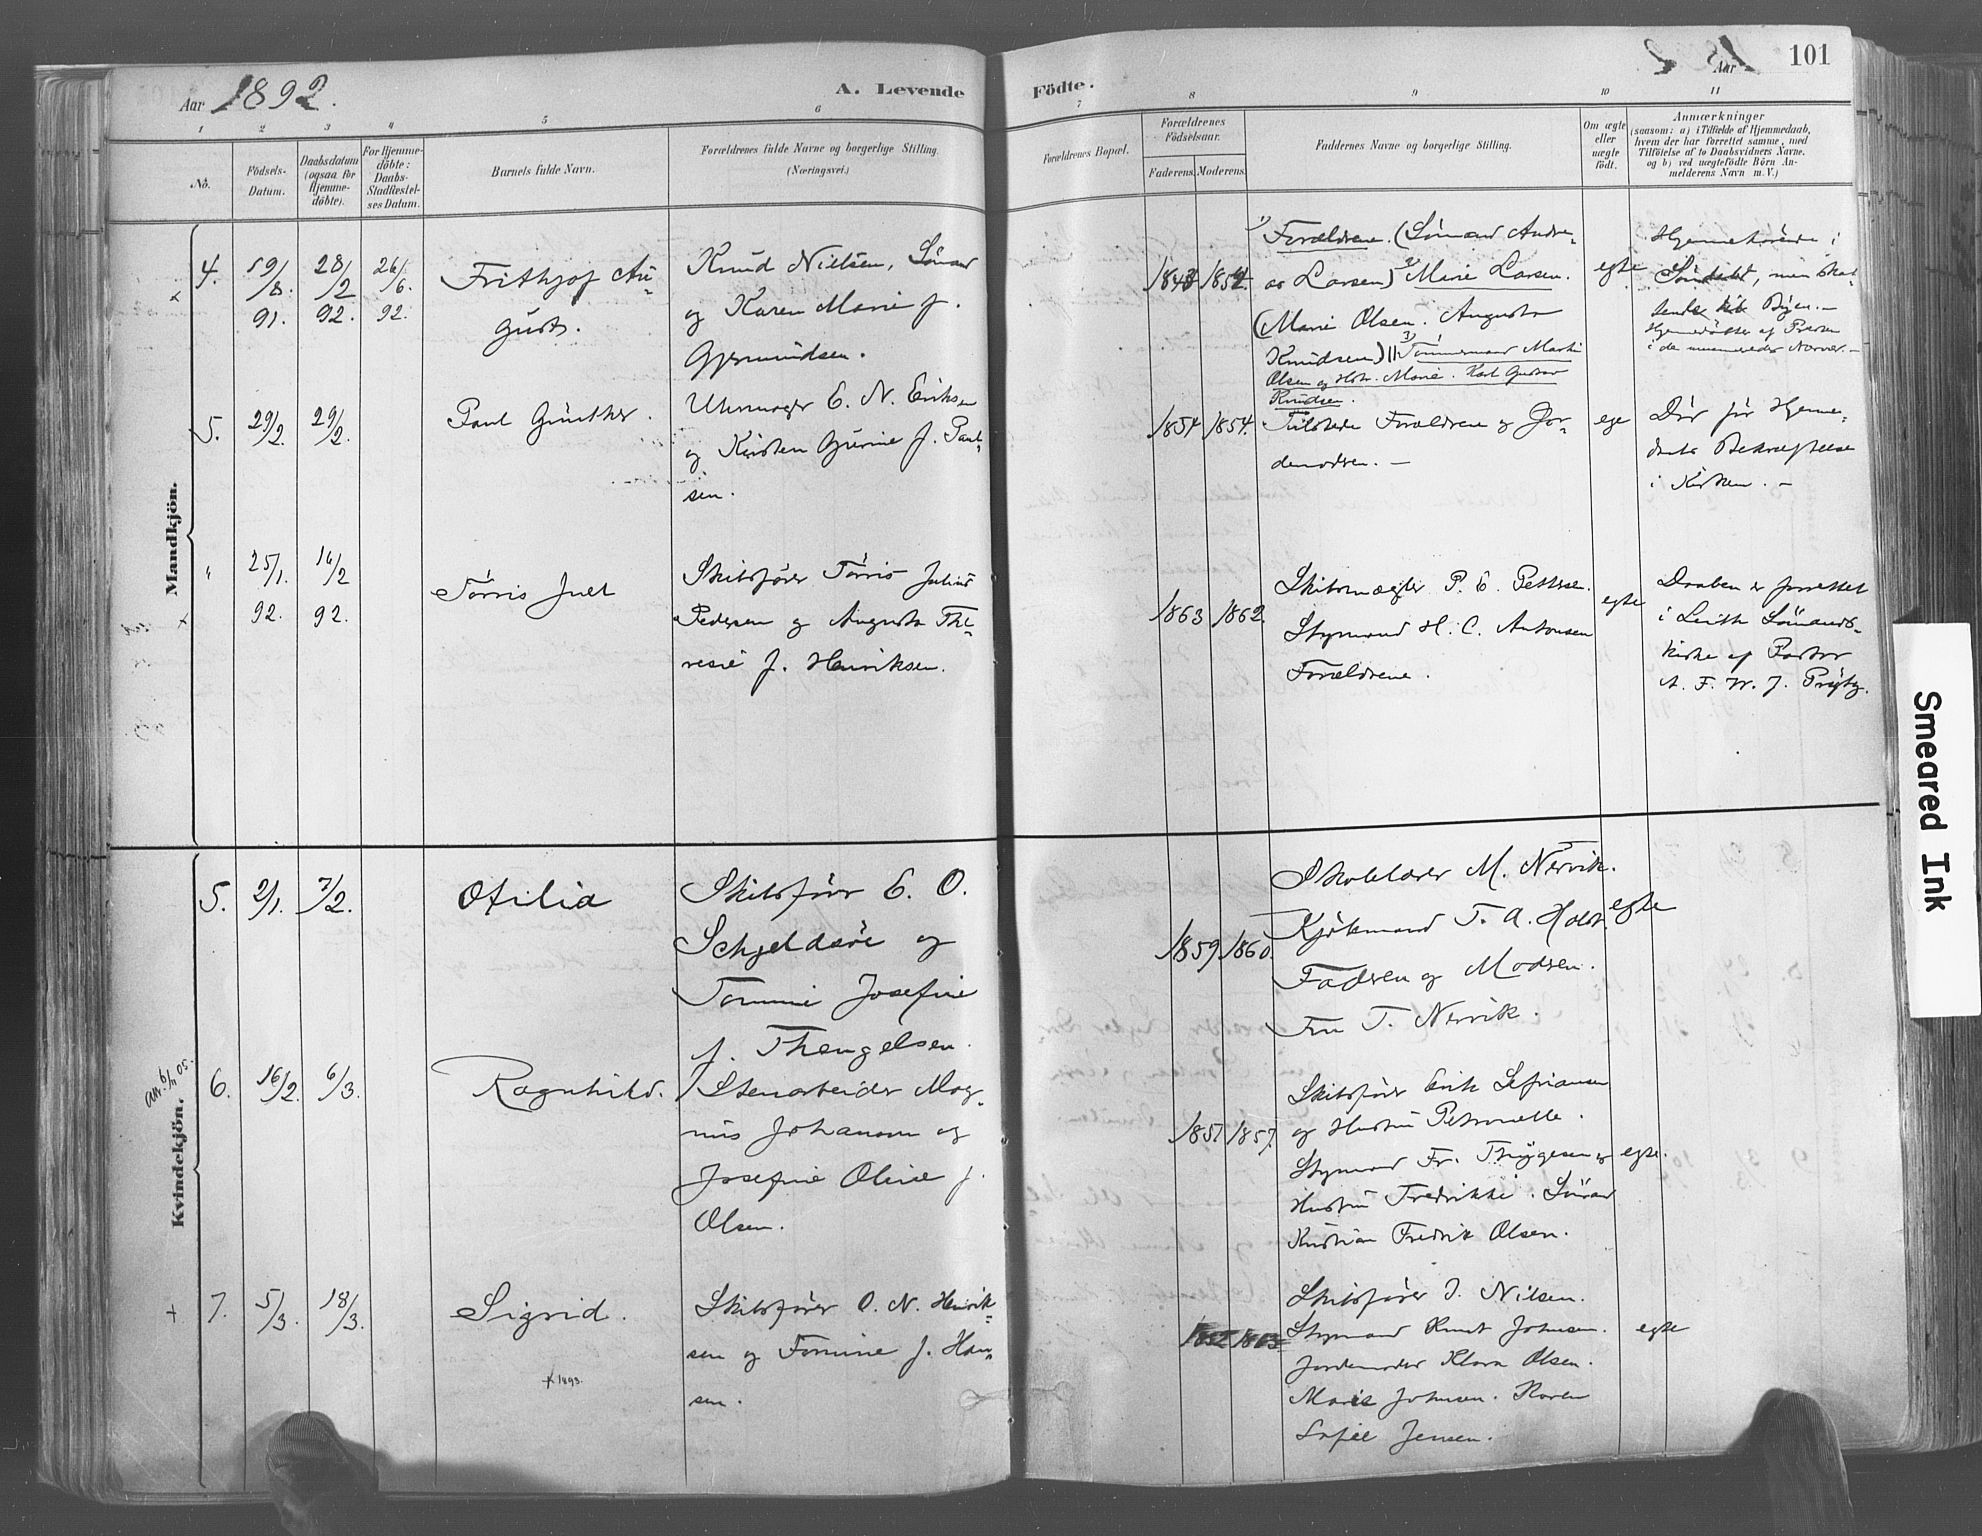 Aar 1892.
A. Levende
Födte.
Aar
101
1
2
3
4
5
6
7
8
9
10
11
No.
Födsels-
Datum.
Daabsdatum
(ogsaa for
Hjemme-
döbte).
For Hjemme-
döbte:
Daabs-
Stadfæstel-
ses Datum.
Barnets fulde Navn.
Forældrenes fulde Navne og borgerlige Stilling.
(Næringsvei.)
Forældrenes Bopæl.
Forældrenes
Födselsaar.
Faderens.
Moderens.
Faddernes Navne og borgerlige Stilling.
Om ægte
eller
uægte
födt.
Anmærkninger
(saasom: a) i Tilfælde af Hjemmedaab,
hvem der har forrettet samme, med
Tilföielse af to Daabsvidners Navne.
og b) ved uægtefödte Börn An-
melderens Navn m. V.)
Mandkjön.
4.
59/8.
91.
28/2
92.
26/6.
92.
Frithjof Au-
gust.
Knud Nielsen, Sömand
og Karen Marie f.
Gjermundsen.
1843
1852
1) Forældrene. (Sömand Andre-
as Larsen) 2) Marie Larsen.
(Marie Olsen. Augusta
Knudsen) 3) Tömmermand Martin
Olsen og Hstr. Marie. Karl Gustav
Knudsen.
egte
Hjemmehörende i
men skat-
tende til Byen.-
Hjemmedöbt af Presten
i de
5.
29/2.
29/2.
Paul Günther.
Uhrmager E. N. Eriksen
og Kirsten Gurine f. Paul-
sen.
1854
1854.
Tilstede Forældrene og Jor-
demodren. -
ege
Död för Hjemme-
daabs Bekræftelse
i Kirken. -
"
25/1.
92.
14/2
92.
Törris Juel
Skibsförer Törris Julius
Pedersen og Augusta The-
resie f. Henriksen.
1863
1862.
Skibsmægler P. C. Pettersen.
Styrmand H. C. Antonsen
Forældrene.
egte
Daaben er forrettet
i Leith Sömands-
kirke af Pastor
A. F. W. J. Prÿtz.
Kvindekjön.
5.
2/1.
7/2.
Otilia
Skibsförer E. O.
Schjeldsöe og
Tomine Josefine
f. Thengelsen.
1859
1860.
Skolelærer M. Nervik.
Kjöbmand T. A. Holst
Fadren og Modren.
Fru T. Nervik.
egte
6.
16/2.
6/3.
Ragnhild.
Stenarbeider Mag-
nus Johansen og
Josefine Oline f.
Olsen.
1857
1857.
Skibsförer Erik Sefriansen
og Hustru Petronelle.
Styrmand Fr. Thÿgesen og
Hustru Fredrikke. Sömand
Kristian Fredrik Olsen.
egte.
7.
5/3.
18/3.
Sigrid.
+ 1893.
Skibsförer O. N. Henrik-
sen og Tomine f. Han-
sen.
1852
1863
Skibsförer J. Nilsen.
Styrmand Knut Johnsen.
Jordemoder Klara Olsen.
Marie Johnsen. Karen
Sofie Jensen.
egte
Smeared Ink